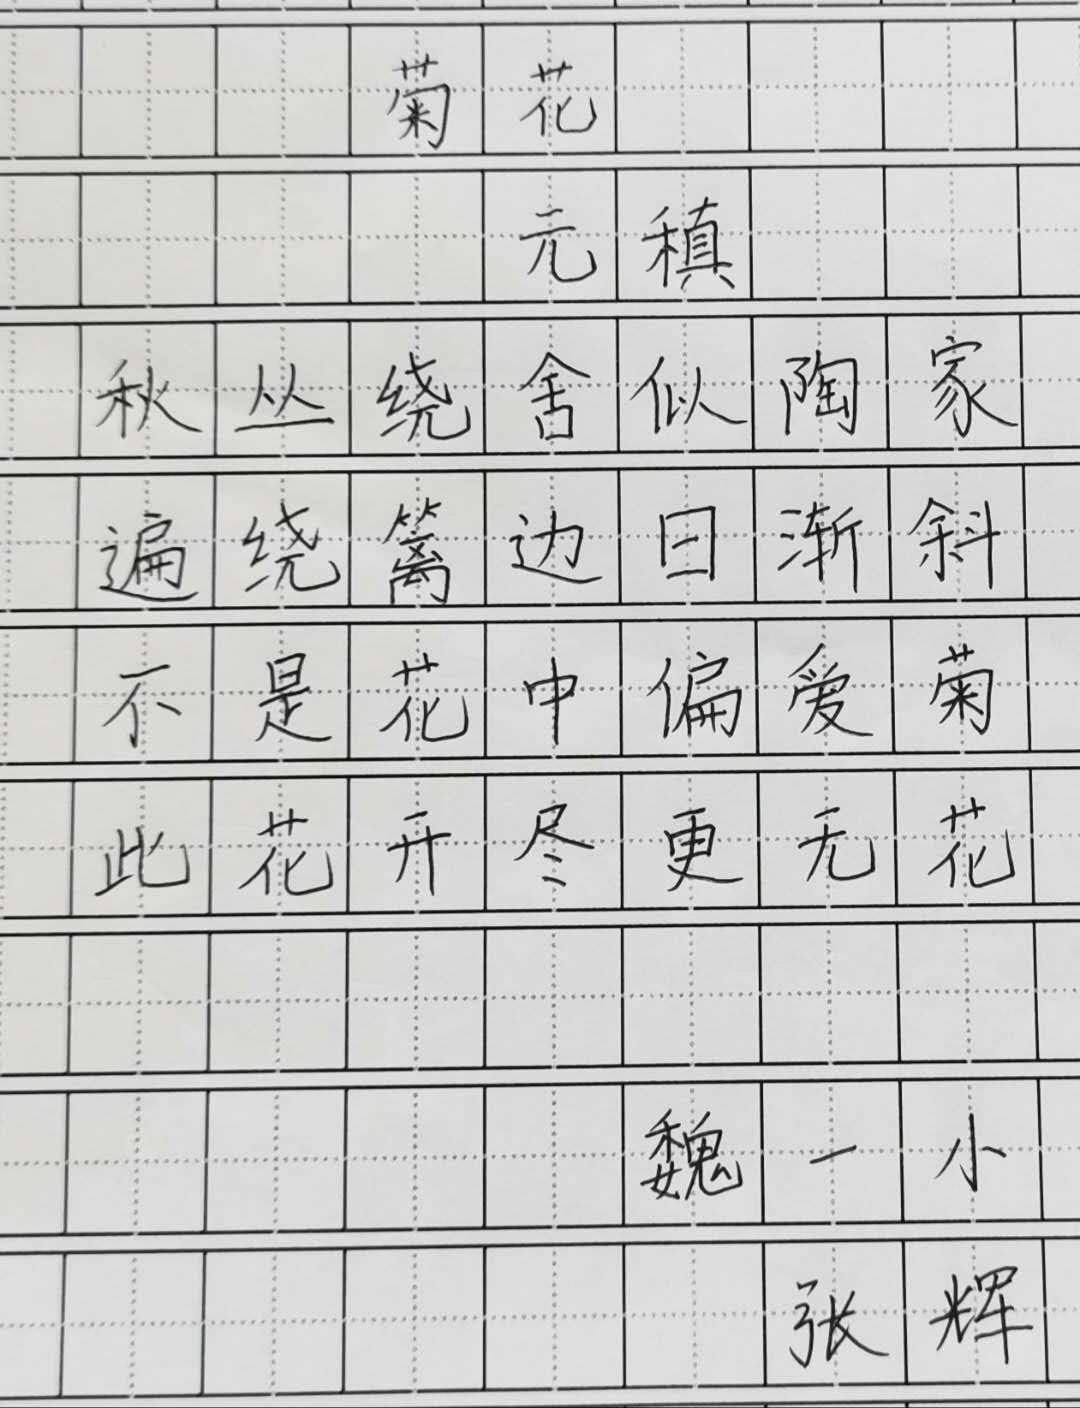 菊花
元稹
秋丛绕舍似陶家
遍绕篱边日渐斜
不是花中偏爱菊
此花开尽更无花
魏一小
张辉